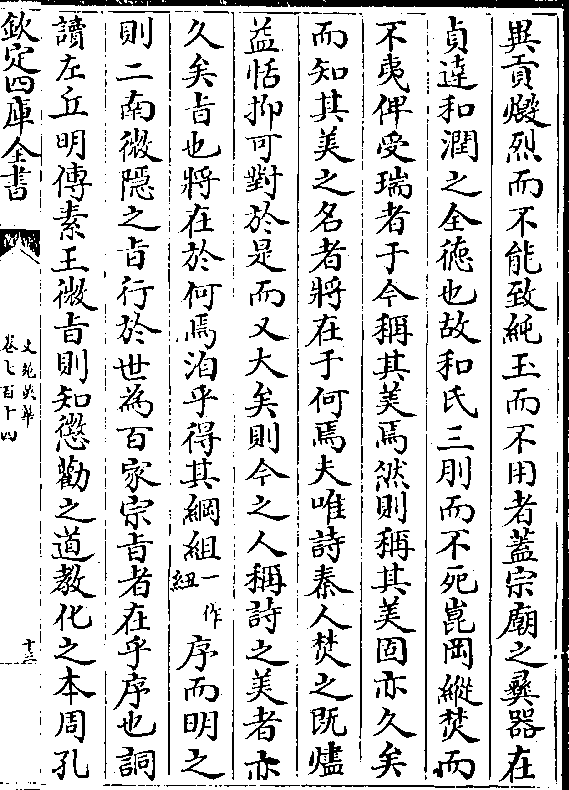 異貢燬烈而不能致純玉而不用者蓋宗廟之彛器在
貞達和潤之全徳也故和氏三刖而不死崑岡縱焚而
不夷俾受瑞者于今稱其美焉然則稱其美固亦久矣
而知其美之名者將在于何焉夫唯詩秦人焚之既燼
益恬抑可對於是而又大矣則今之人稱詩之美者亦
久矣㫖也將在於何焉洎乎得其綱組一作紐序而明之
則二南微隠之㫖行於世為百家宗㫖者在乎序也詞
讀左丘明傳素王微㫖則知懲勸之道教化之本周孔
欽定四庫全書
文苑英華
卷七百十四
十三